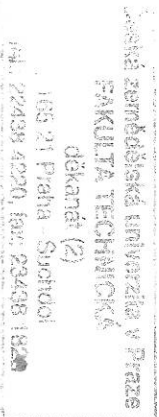 zemědělská univerzita v Praze
FAKULTA TECHNICKÁ
děkanát (2)
165 21 Praha Suchdol
22438 4220 fax: 23438 18